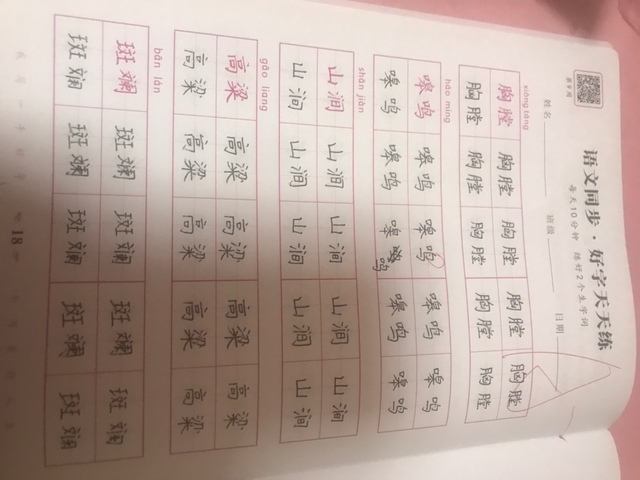 语文同步·好字天天练
每天10分钟 练好2个生字词
姓名 班级 日期
xiōng táng
胸膛 胸膛 胸膛 胸膛 胸膛
胸膛 胸膛 胸膛 胸膛 胸膛
háo míng
嗥鸣 嗥鸣 嗥鸣 嗥鸣 嗥鸣
嗥鸣 嗥鸣 嗥鸣 嗥鸣 嗥鸣
鸣
shān jiàn
山涧 山涧 山涧 山涧 山涧
山涧 山涧 山涧 山涧 山涧
gāo liang
高粱 高粱 高粱 高粱 高粱
高粱 高粱 高粱 高粱 高粱
bān lán
斑斓 斑斓 斑斓 斑斓 斑斓
斑斓 斑斓 斑斓 斑斓 斑斓
18